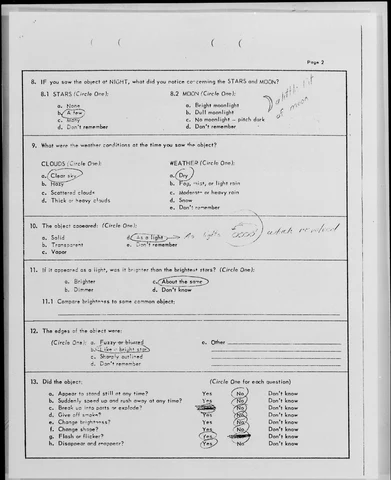 Page 2
8. IF you saw the object at NIGHT, what did you notice concerning the STARS and MOON?
8.1 STARS (Circle One): 8.2 MOON (Circle One):
a. None a. Bright moonlight
b. A few b. Dull moonlight
c. Many c. No moonlight – pitch dark
d. Don't remember d. Don't remember
a little bit
of moon
9. What were the weather conditions at the time you saw the object?
CLOUDS (Circle One): WEATHER (Circle One):
a. Clear sky a. Dry
b. Hazy b. Fog, mist, or light rain
c. Scattered clouds c. Moderate or heavy rain
d. Thick or heavy clouds d. Snow
e. Don't remember
10. The object appeared: (Circle One):
a. Solid d. As a light As lights which revolved
b. Transparent e. Don't remember
c. Vapor
11. If it appeared as a light, was it brighter than the brightest stars? (Circle One):
a. Brighter c. About the same
b. Dimmer d. Don't know
11.1 Compare brightness to some common object:
12. The edges of the object were:
(Circle One): a. Fuzzy or blurred e. Other
b. Like a bright star
c. Sharply outlined
d. Don't remember
13. Did the object: (Circle One for each question)
a. Appear to stand still at any time? Yes No Don't know
b. Suddenly speed up and rush away at any time? Yes No Don't know
c. Break up into parts or explode? No Don't know
d. Give off smoke? Yes No Don't know
e. Change brightness? Yes No Don't know
f. Change shape? Yes No Don't know
g. Flash or flicker? Yes Don't know
h. Disappear and reappear? Yes No Don't know